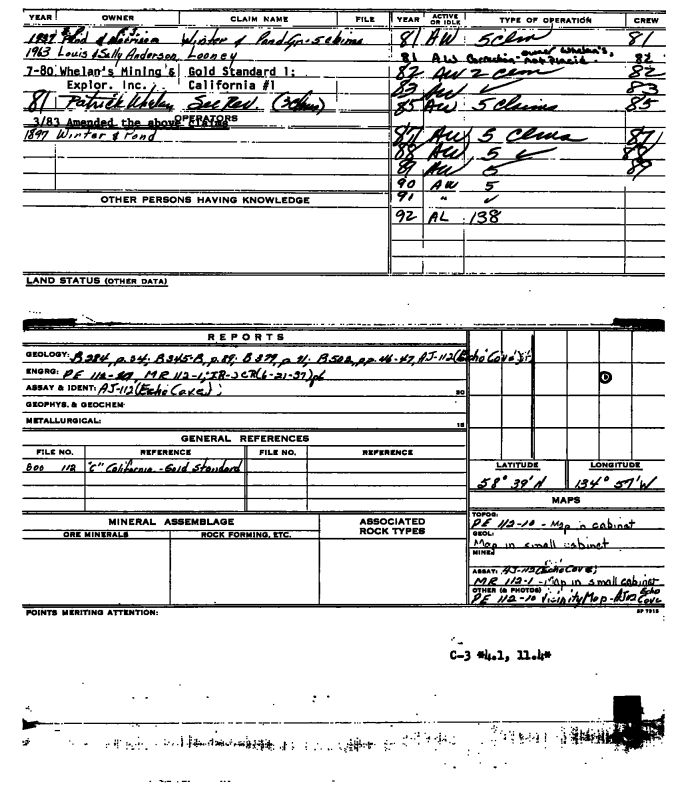 YEAR OWNER CLAIM NAME FILE
1897 Winter & Pond Gr. - 5 claims
1963 Louis & Sally Anderson, Looney
7-80 Whelan's Mining & Gold Standard 1:
Explor. Inc., California #1
81 Patrick Whelan See Rev.
3/83 Amended the above claims
OPERATORS
1897 Winter & Pond
OTHER PERSONS HAVING KNOWLEDGE
YEAR ACTIVE OR IDLE TYPE OF OPERATION CREW
81 AW 5 clm 81
81 AW over Whelan's, not placid. 82
82 AW 2 clm 82
83 AW ✓ 83
85 AW 5 claims 85
87 AW 5 clms 87
88 AW 5 ✓ 88
89 AW 5 89
90 AW 5
91 " ✓
92 AL 138
LAND STATUS (OTHER DATA)
REPORTS
GEOLOGY: B284, p.34; B345-B, p.89; B379, p.71; B502, pp.46-47, AJ-112(Echo Cove)
ENGRG: PE 112-10, MR 112-1; IR-JCR(6-21-37)
ASSAY & IDENT: AJ-112(Echo Cove); 20
GEOPHYS. & GEOCHEM-
METALLURGICAL: 15
GENERAL REFERENCES
FILE NO. REFERENCE FILE NO. REFERENCE
BOO 112 "C" California - Gold Standard
MINERAL ASSEMBLAGE ASSOCIATED ROCK TYPES
ORE MINERALS ROCK FORMING, ETC.
LATITUDE LONGITUDE
58° 39' N 134° 57' W
MAPS
TOPOG: PE 112-10 - Map in cabinet
GEOL: Map in small cabinet
MINE:
ASSAY: AJ-112(Echo Cove)
MR 112-1 - Map in small cabinet
OTHER (& PHOTOS)
PE 112-10 Vicinity Map - AJ112 Echo Cove
POINTS MERITING ATTENTION:
C-3 #4.1, 11.4*